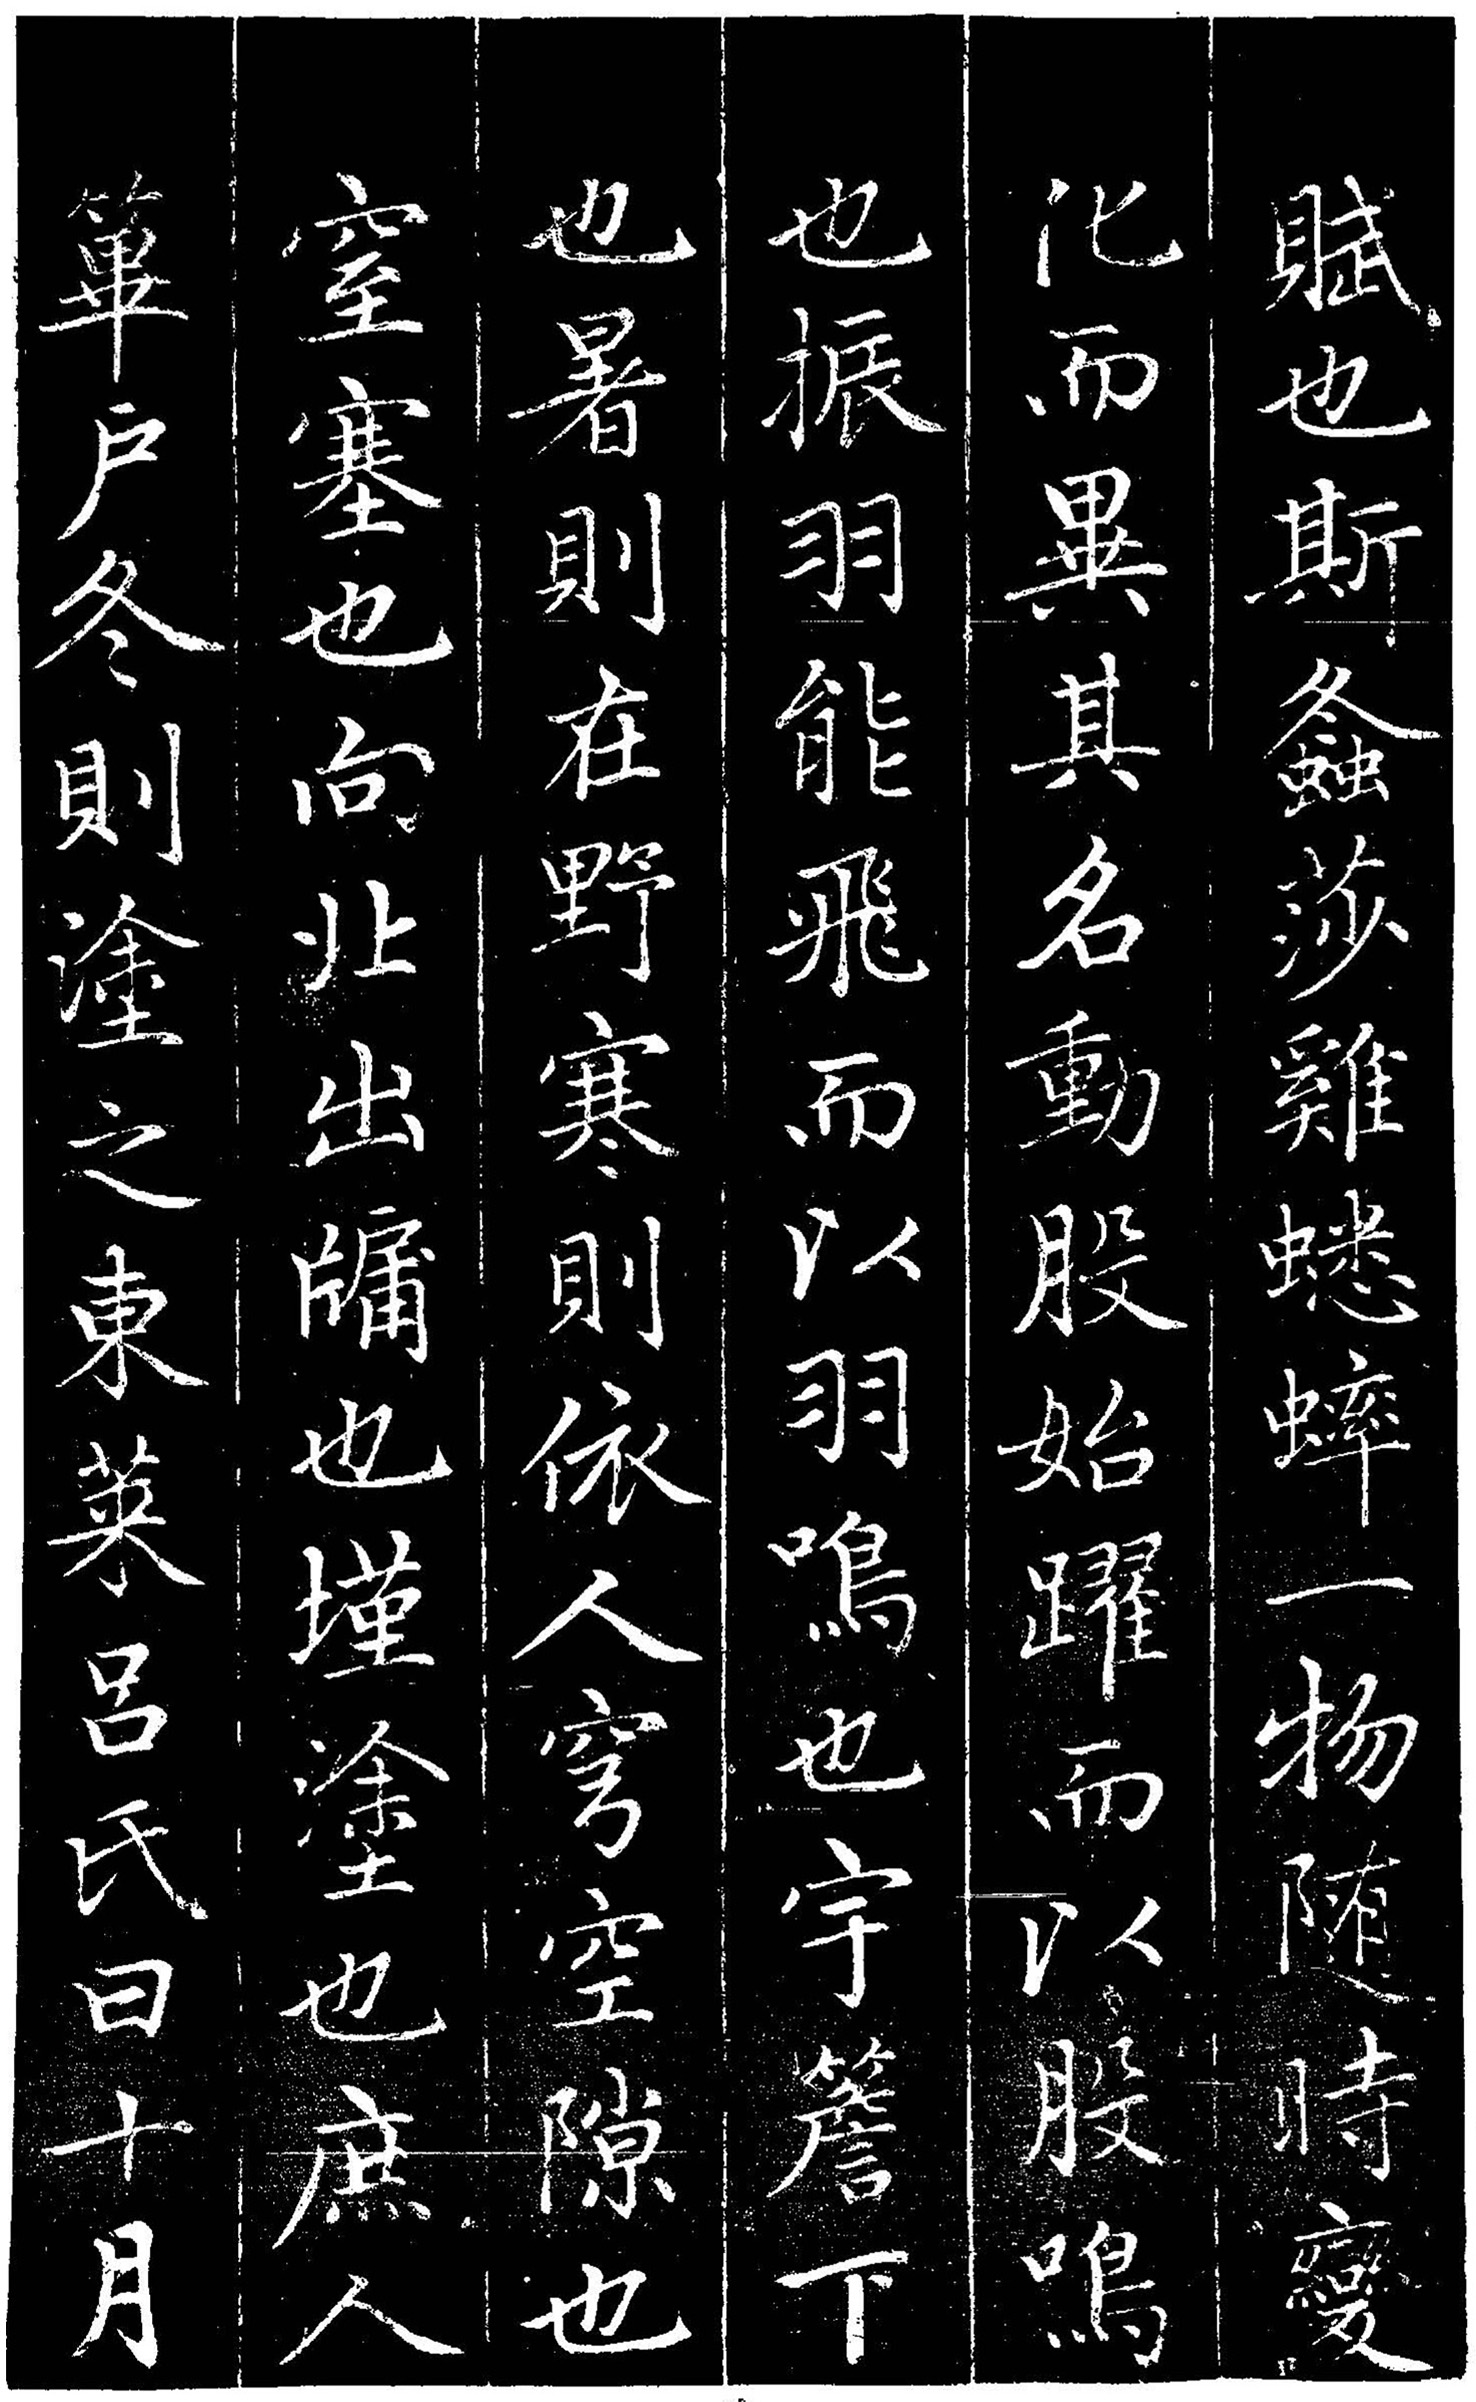 賦也斯螽莎雞蟋蟀一物随時變
化而異其名動股始躍而以股鳴
也振羽能飛而以羽鳴也宇簷下
也暑則在野寒則依人穹空隙也
窒塞也向北出牖也墐塗也庶人
篳戶冬則塗之東萊呂氏曰十月